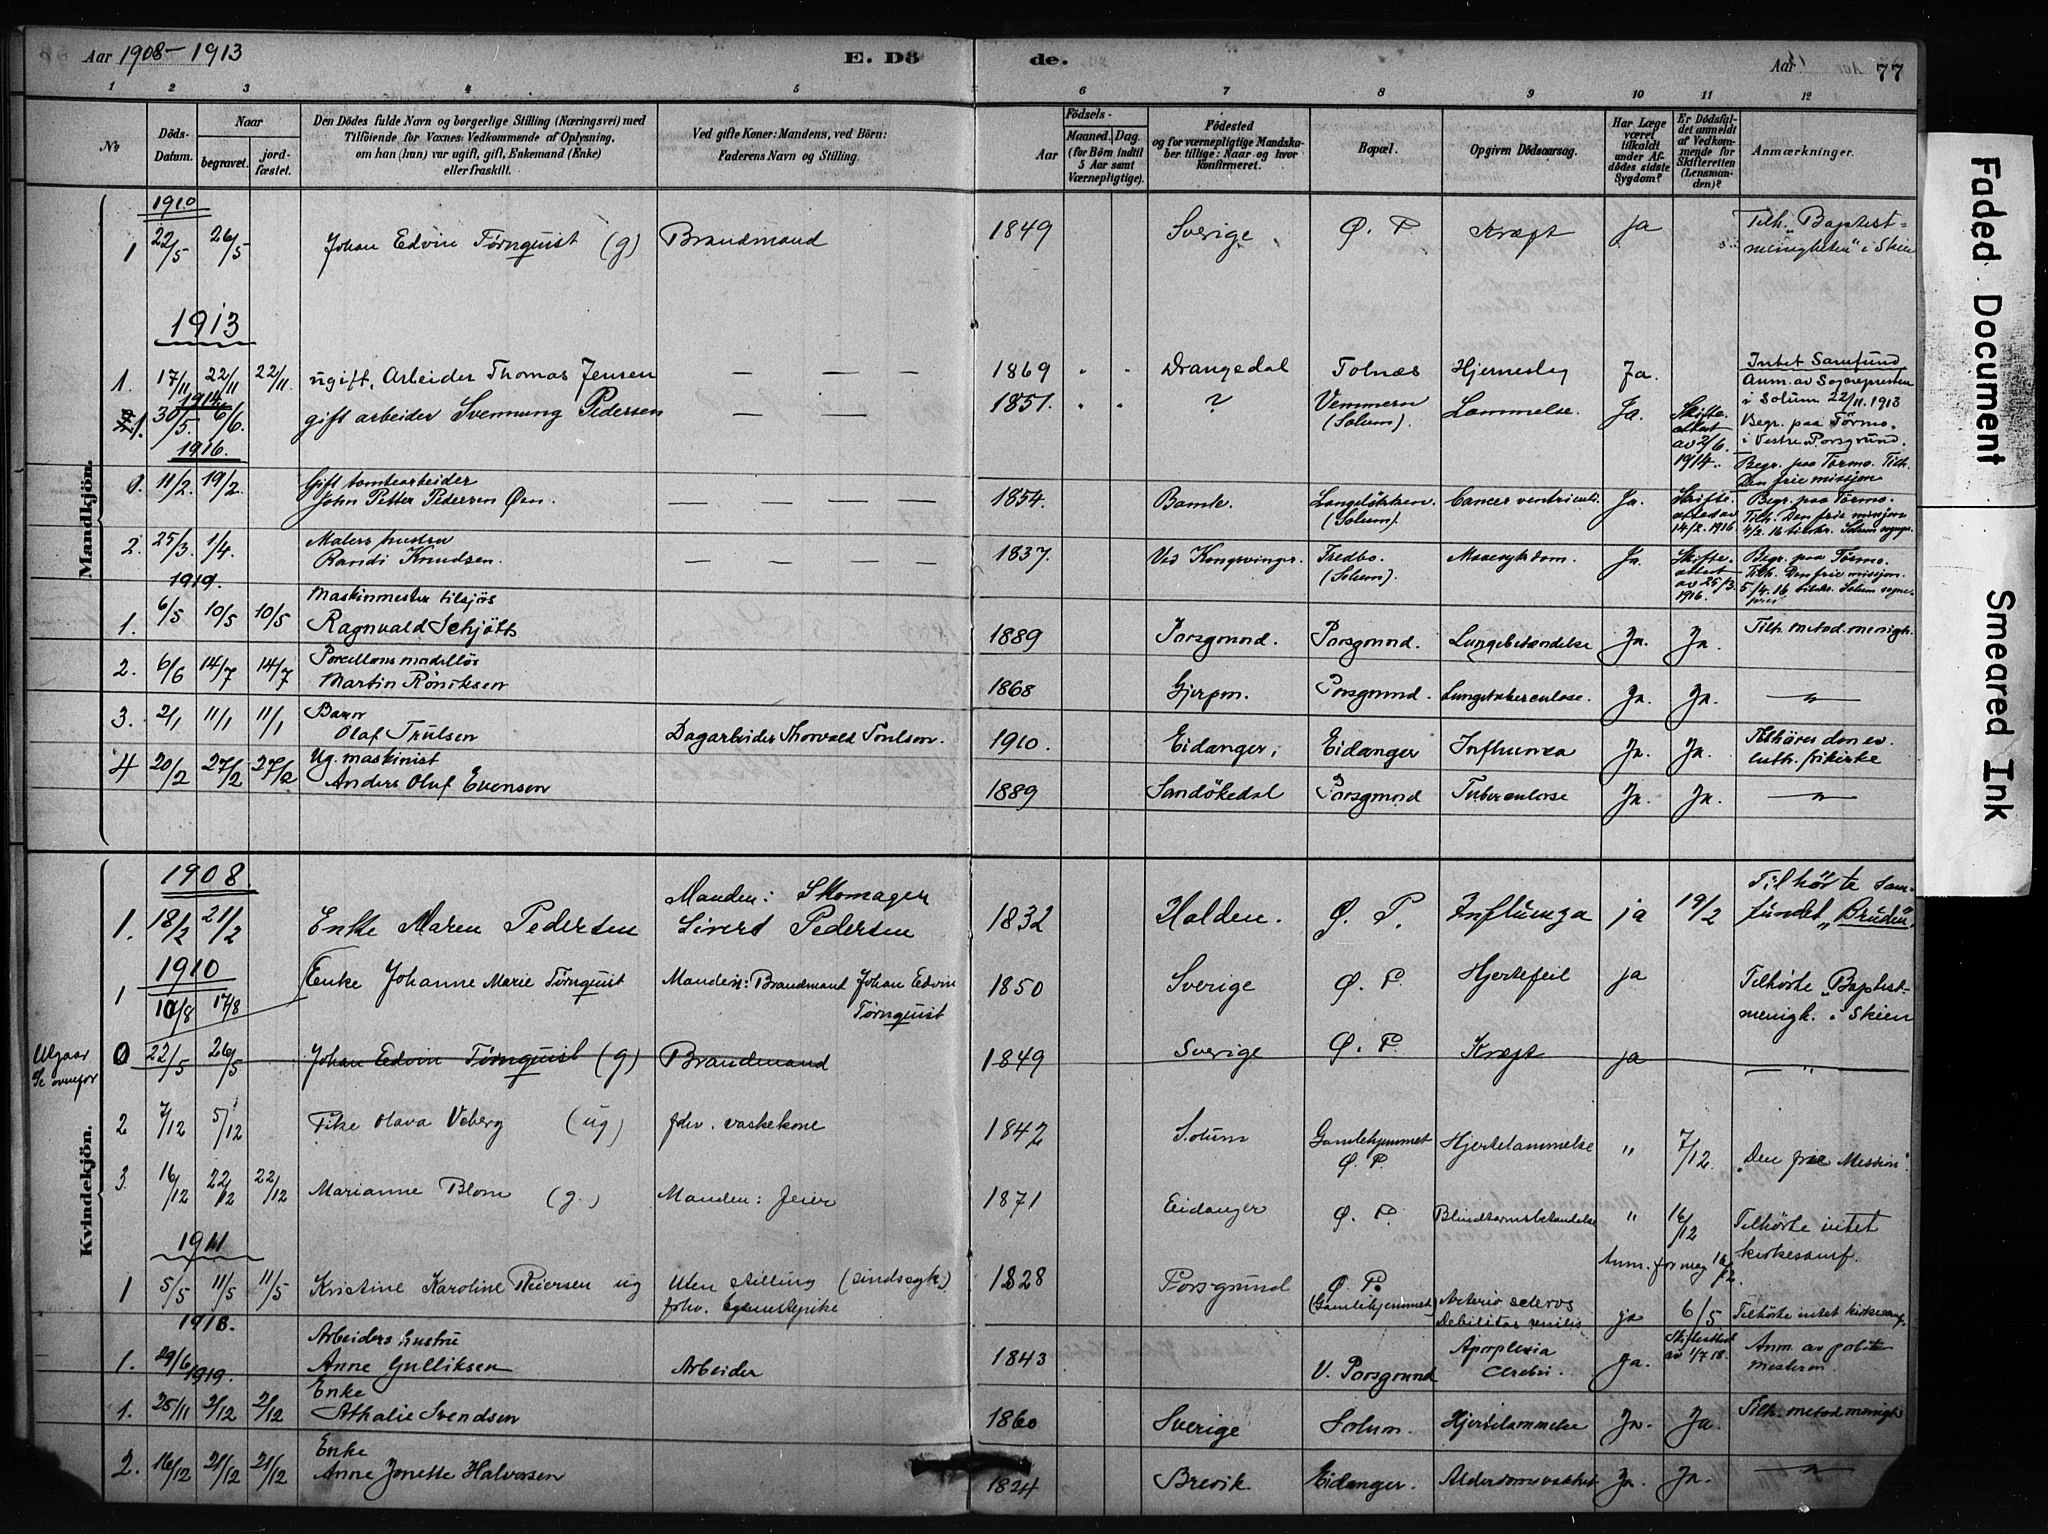 Aar 1908-1913
E. Dö
de.
Aar
77
1 2 3 4 5
6 7 8 9 10 11 12
№
Döds-
Datum.
Naar
begravet.
jord-
fæstet.
Den Dödes fulde Navn og borgerlige Stilling (Næringsvei) med
Tilföiende for Voxnes Vedkommende af Oplysning,
om han (hun) var ugift, gift, Enkemand (Enke)
eller fraskilt.
Ved gifte Koner: Mandens, ved Börn:
Faderens Navn og Stilling.
Aar
Födsels-
Maaned. Dag.
(for Börn indtil
5 Aar samt
Værnepligtige).
Födested
og for værnepligtige Mandska-
ber tillige: Naar og hvor
konfirmeret.
Bopæl.
Opgiven Dödsaarsag.
Har Læge
været
tilkaldt
under Af-
dödes sidste
Sygdom?
Er Dödsfal-
det anmeldt
af Vedkom-
mende for
Skifteretten
(Lensman-
den)?
Anmærkninger.
Mandkjön.
1910
1 22/5 26/5 Johan Edvin Tørnquist (g) Brandmand 1849 Sverige Ø. P. Kræft ja Tilh. "Baptist-
menigheten" i Skien
1913
1. 17/11 22/11 22/11. ugift. Arbeider Thomas Jensen — — — 1869 " " Drangedal Tolnæs Hjerneslag Ja. Intet Samfund
Anm. av Sognepresten
i Solum 22/11. 1913
1914
1. 30/5. 6/6. gift arbeider Svennung Pedersen — — 1851. " " ? Vemmern
(Solum). Lammelse. Ja. Skifte-
attest
av 2/6.
1914. Begr. paa Tørmo.
i Vestre Porsgrund.
1916.
1. 11/2. 19/2. Gift tomtearbeider
John Petter Pedersen Øen. — — — — 1854. Bamle. Langeløkken
(Solum). Cancer ventriculi. Ja. Skifte-
attest av
14/2. 1916 Begr. paa Tørmo. Tilh.
Den frie missjon
2. 25/3. 1/4. Malers hustru
Randi Knudsen. — — — — 1837. Ved Kongsvinger. Fredbo.
(Solum). Mavesykdom. Ja. Skifte-
attest
av 25/3.
1916. Begr. paa Tørmo.
Tilh. Den frie missjon.
1919.
1. 6/5 10/5 10/5 Maskinmester tilsjøs
Ragnvald Schjøtt 1889 Porsgrund. Porsgrund. Lungebetændelse Ja. Ja. Tilh. metod. menigh.
2. 6/6 14/7 14/7 Porcellansmodellør
Martin Røniksen 1868 Gjerpen. Porsgrund. Lungetuberculose. Ja. Ja. — " —
3. 2/1 11/1 11/1 Barn
Olaf Trulsen Dagarbeider Thorvald Trulsen. 1910. Eidanger. Eidanger Influenza Ja. Ja. Tilhører den ev.
luth. frikirke
4 20/2 27/2 27/2 Ug. maskinist
Anders Oluf Evensen 1889 Sandökedal Porsgrund Tuberculose Ja. Ja. — " —
Kvindekjön.
1908
1. 18/2 21/2 Enke Maren Pedersen Manden: Skomager
Sivert Pedersen 1832 Halden. Ø. P. Influenza ja 19/2 Tilhørte Sam-
fundet "Bruden".
1910
1 10/8 17/8 Enke Johanne Marie Tørnquist Manden: Brandmand Johan Edvin
Tørnquist 1850 Sverige Ø. P. Hjertefeil ja Tilhørte "Baptist-
menigh. i Skien
Utgaar
se ovenfor
0 22/5 26/5 Johan Edvin Tørnquist (g) Brandmand 1849 Sverige Ø. P. Kræft ja — " —
2 7/12 5/12 Pike Olava Veberg (ug) fhv. vaskekone 1842 Solum Gamlehjemmet
Ø. P. Hjertelammelse " 7/12. "Den frie Mission".
3. 16/12 22/12 22/12 Marianne Blom (g.) Manden: Jeier 1871 Eidanger Ø. P. Blindtarmsbetændelse " 16/12 Tilhørte intet
kirkesamf.
Anm. for meg 16/12
1911
1 5/5 11/5 11/5 Kristine Karoline Reiersen ug Uten stilling (sindssyk.)
fhv. tjenestepike 1828 Porsgrund Ø. P.
(Gamlehjemmet) Arterio scleros
Debilitas senilis ja 6/5 Tilhørte intet kirkesamf.
1918.
1. 29/6 Arbeiders hustru
Anne Gulliksen Arbeider 1843 V. Porsgrund Apoplexia
cerebri. Ja. Skifteattest
av 1/7 18. Anm av politi-
mesteren.
1919.
1. 25/11 2/12 2/12 Enke
Athalie Svendsen 1860 Sverige Solum. Hjertelammelse Ja. Ja. Tilh. metod. menigh.
2. 16/12 21/12 21/12 Enke
Anne Jonette Halvorsen 1824 Brevik. Eidanger. Alderdomssvakhet Ja. Ja. — " —
Faded Document
Smeared Ink